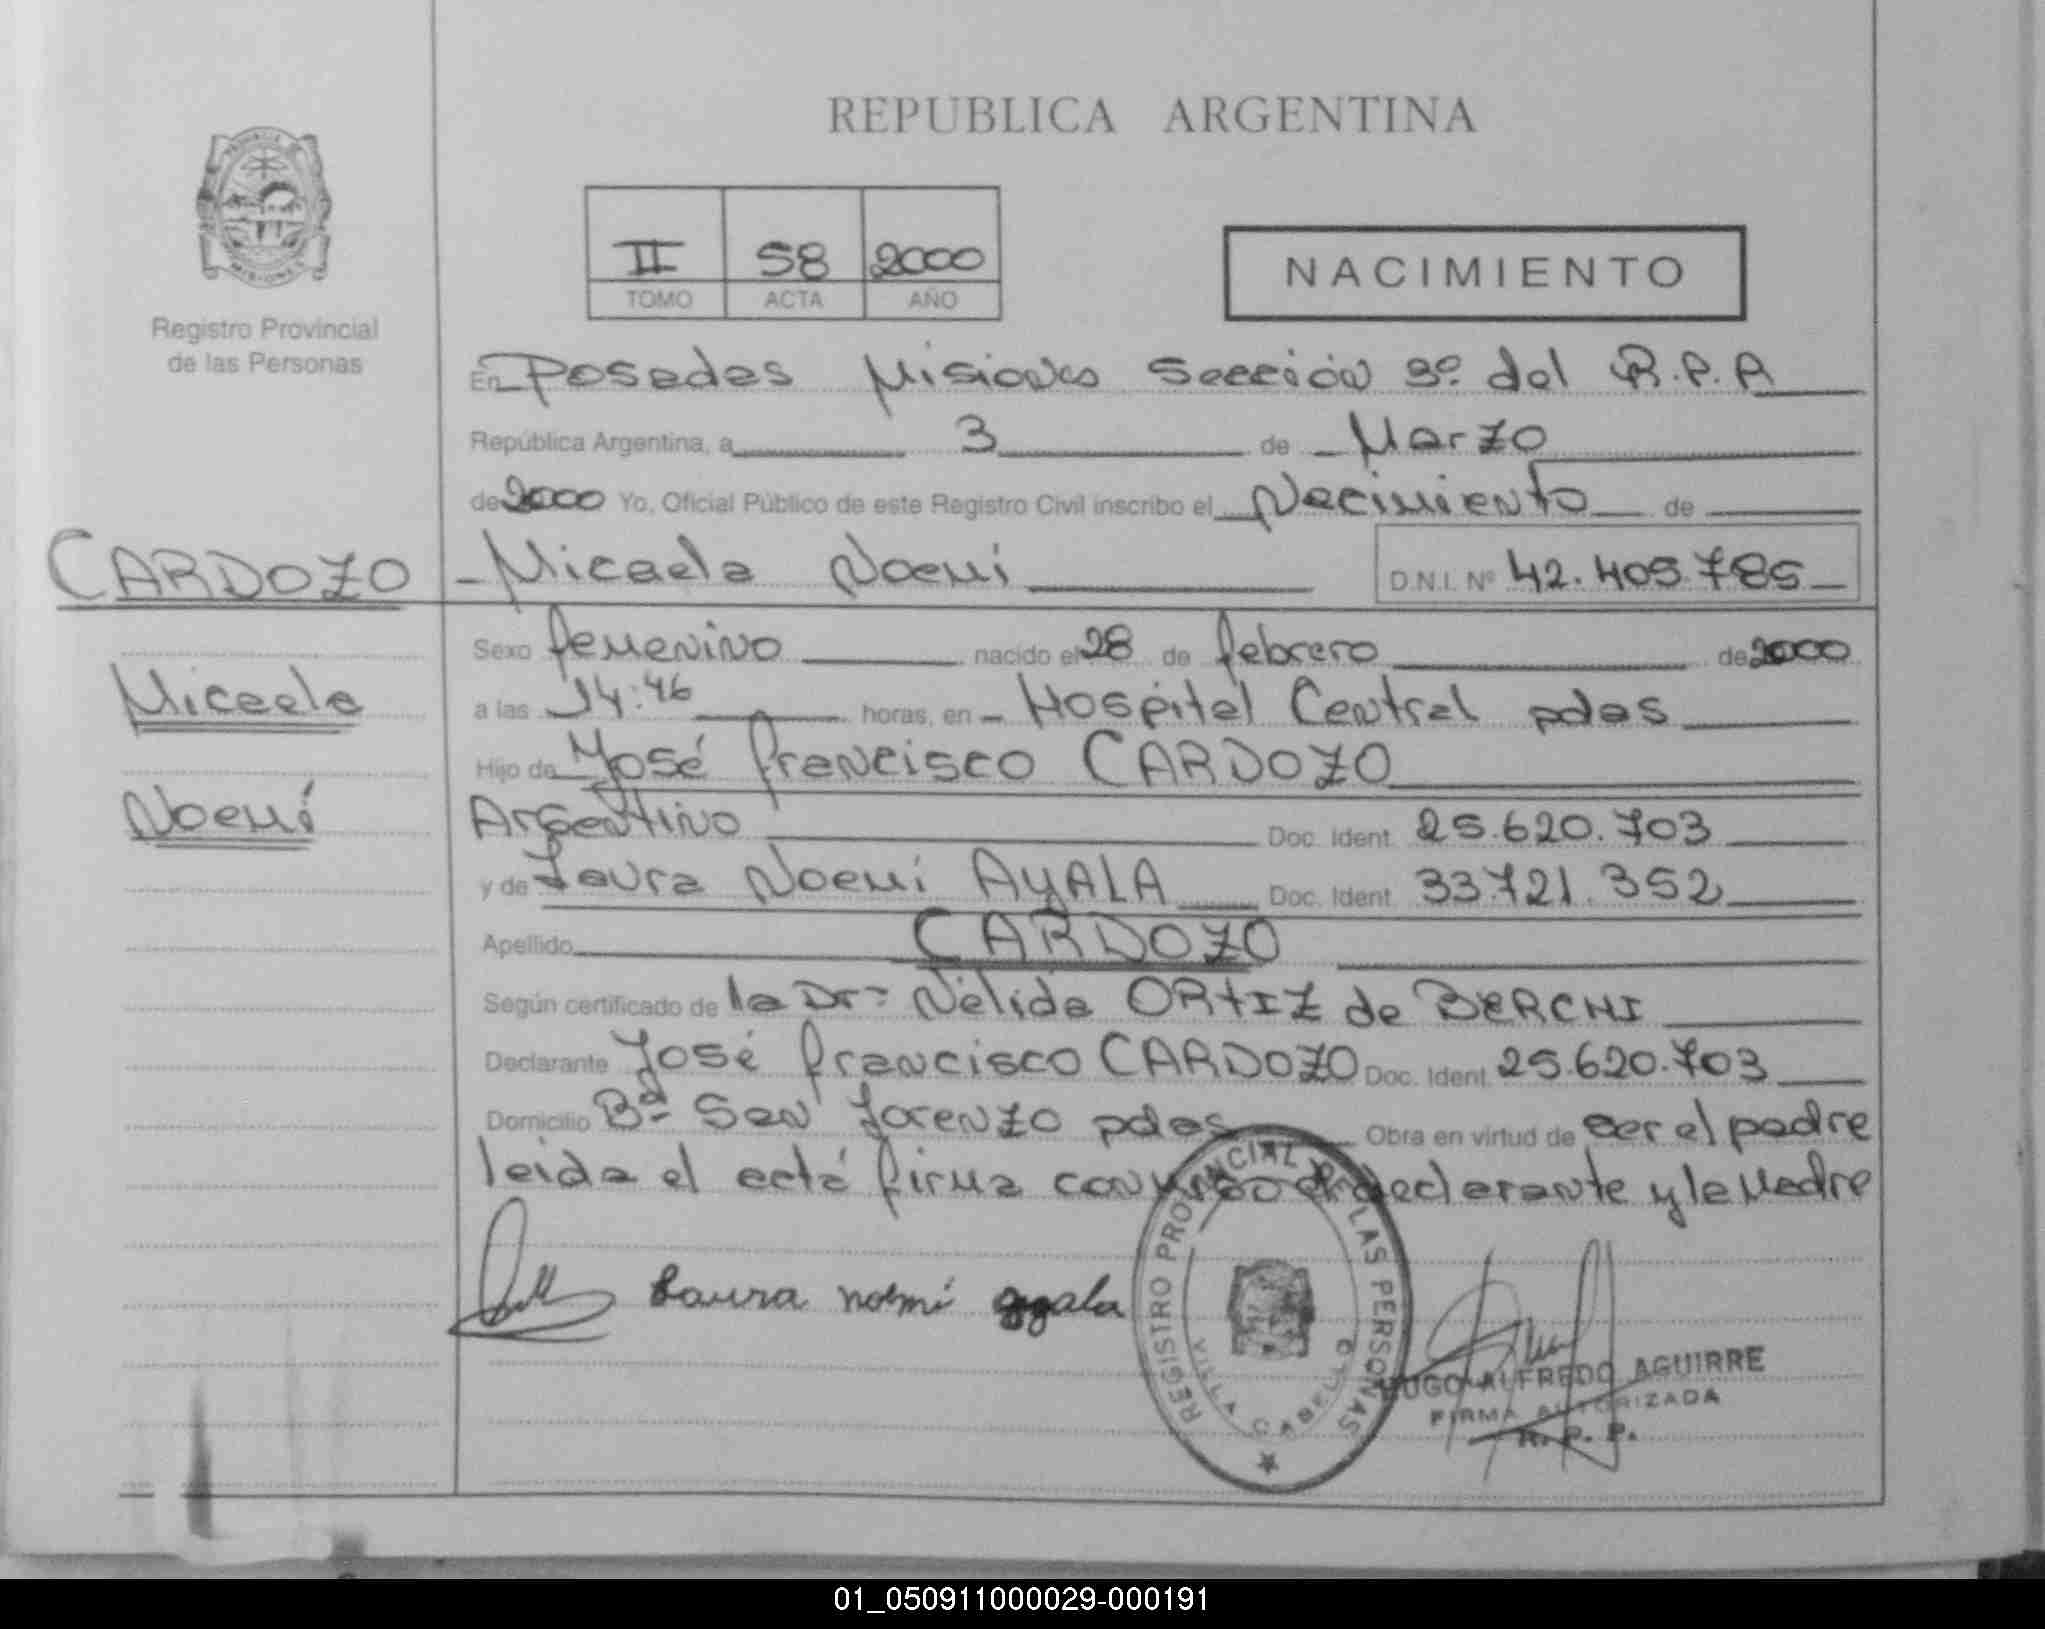 REPUBLICA ARGENTINA
Registro Provincial
de las Personas
II 58 2000
TOMO ACTA AÑO
NACIMIENTO
En Posadas Misiones Sección 3º del R.P.P
República Argentina, a 3 de Marzo
de 2000 Yo, Oficial Público de este Registro Civil inscribo el Nacimiento de
CARDOZO
Micaela Noemí D.N.I. Nº 42.405.785
Micaela
Noemí
Sexo femenino nacido el 28 de febrero de 2000
a las 14:46 horas, en Hospital Central pdas
Hijo de José francisco CARDOZO
Argentino Doc. Ident. 25.620.703
y de Laura Noemí AyALA Doc. Ident. 33.721.352
Apellido CARDOZO
Según certificado de la Drª Nélida ORTIZ de BERCHI
Declarante José francisco CARDOZO Doc. Ident. 25.620.703
Domicilio Bº San Lorenzo pdas Obra en virtud de ser el padre
leida el acta firma conmigo el declarante y la Madre
Laura noemí ayala
REGISTRO PROVINCIAL DE LAS PERSONAS
VILLA CABELLO
HUGO ALFREDO AGUIRRE
FIRMA AUTORIZADA
R. P. P.
01_050911000029-000191